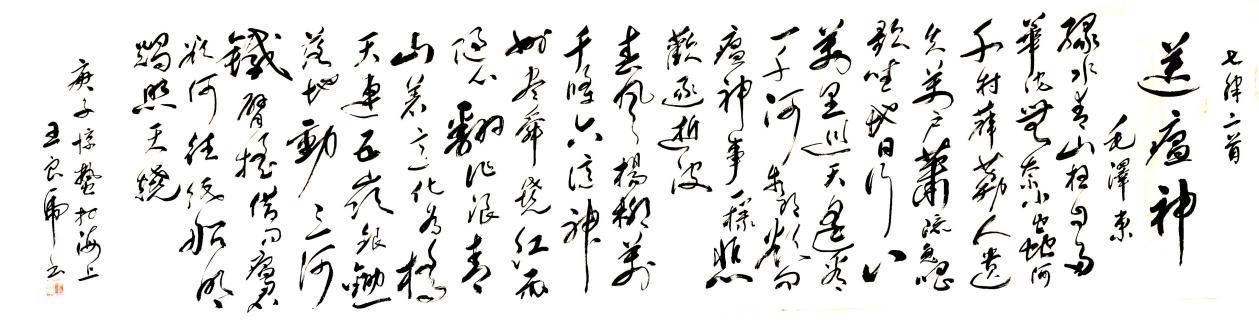 七律二首
送瘟神
毛澤東
绿水青山枉自多
華佗無奈小虫何
千村薜荔人遗
矢萬户蕭疏鬼唱
歌坐地日行八
萬里巡天遥看
一千河牛郎欲问
瘟神事一樣悲
歡逐逝波
春风楊柳萬
千條六億神
州尽舜堯红雨
随心翻作浪青
山着意化为橋
天連五嶺銀鋤
落地動三河
鐵臂摇借问瘟君
欲何往纸船明
燭照天燒
庚子惊蟄于海上
王良虎书